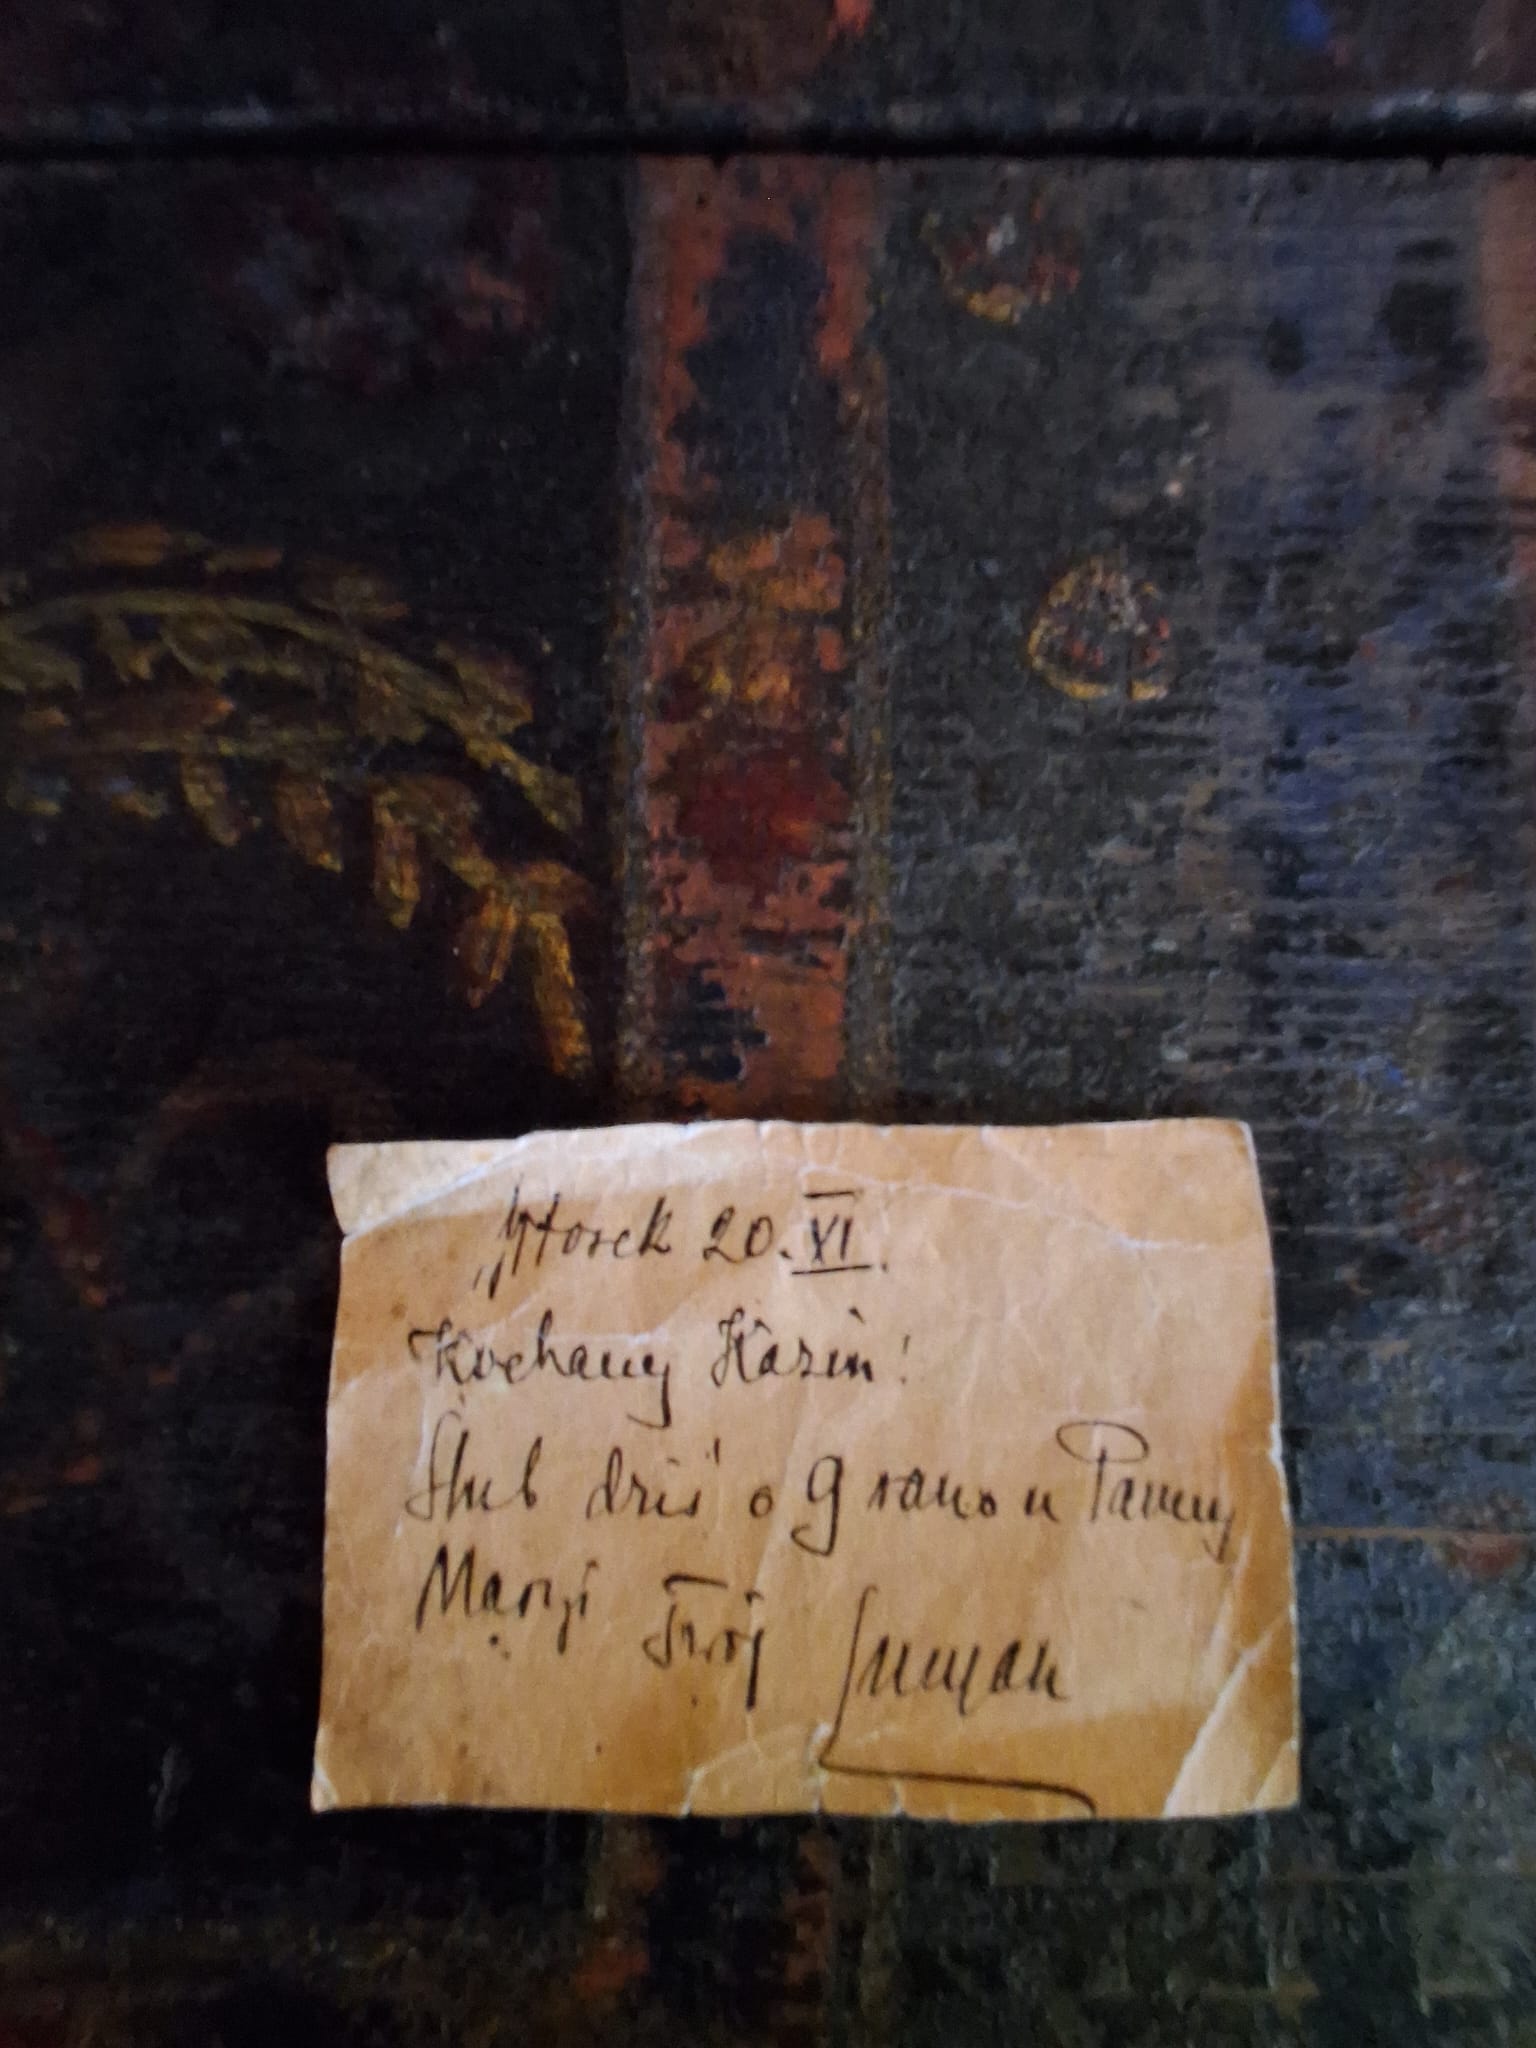 Wtorek 20. XI.
Kochany Kaziu!
Ślub dziś o 9 rano u Panny
Maryi Twój